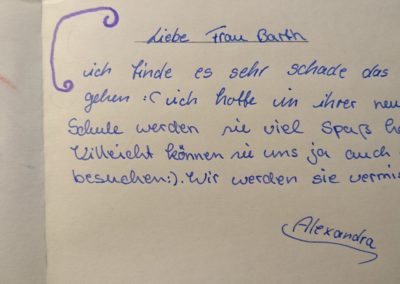 Liebe Frau Barth
ich finde es sehr schade das
gehen :( ich hoffe in ihrer neu
Schule werden sie viel Spaß ha
Villeicht können sie uns ja auch
besuchen:). Wir werden sie vermis
Alexandra